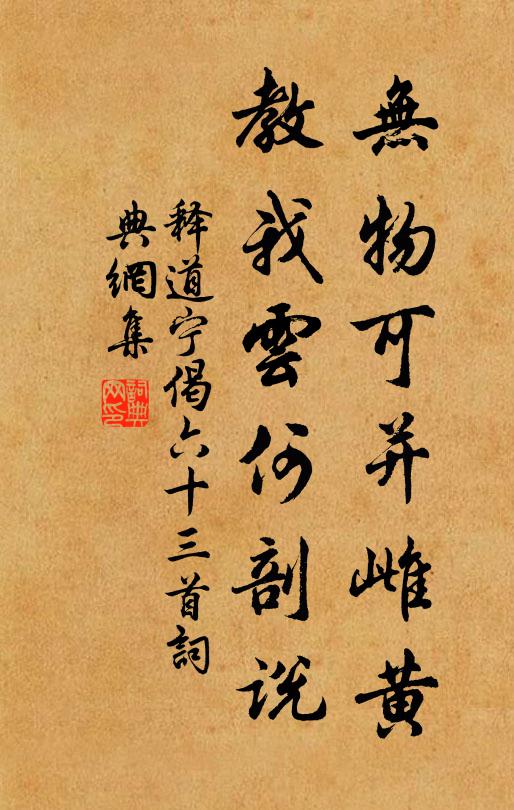 無物可并雌黄
教我雲何剖説
释道宁偈六十三首詞
典網集
詞典網印